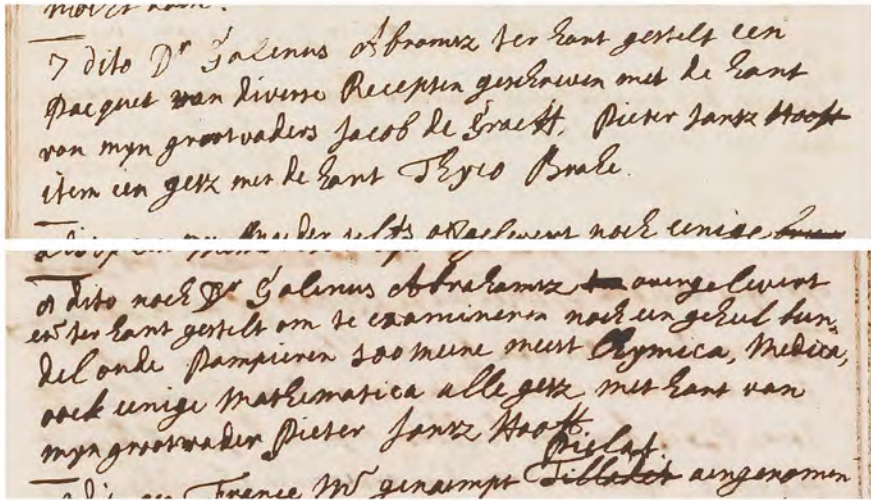 7 dito Dr Galenus Abramsz ter hant gestelt een
pacquet van diverse Recepten geschreven met de hant
van myn grootvaders Jacob de Graeff, Pieter Jansz Hooft
item een gesz met de hant Thyco Brahe.
noch eenige
dito noch Dr Galenus Abrahamsz overgelevert
ter hant gestelt om te examineren noch een geheel bun,
del oude Pampieren soo meene meest Chymica, Medica,
oock eenige Mathematica alle gesz met hant van
myn grootvader Pieter Jansz Hooft.
Pielat.
France Mr genaempt Tilladet aengenomen